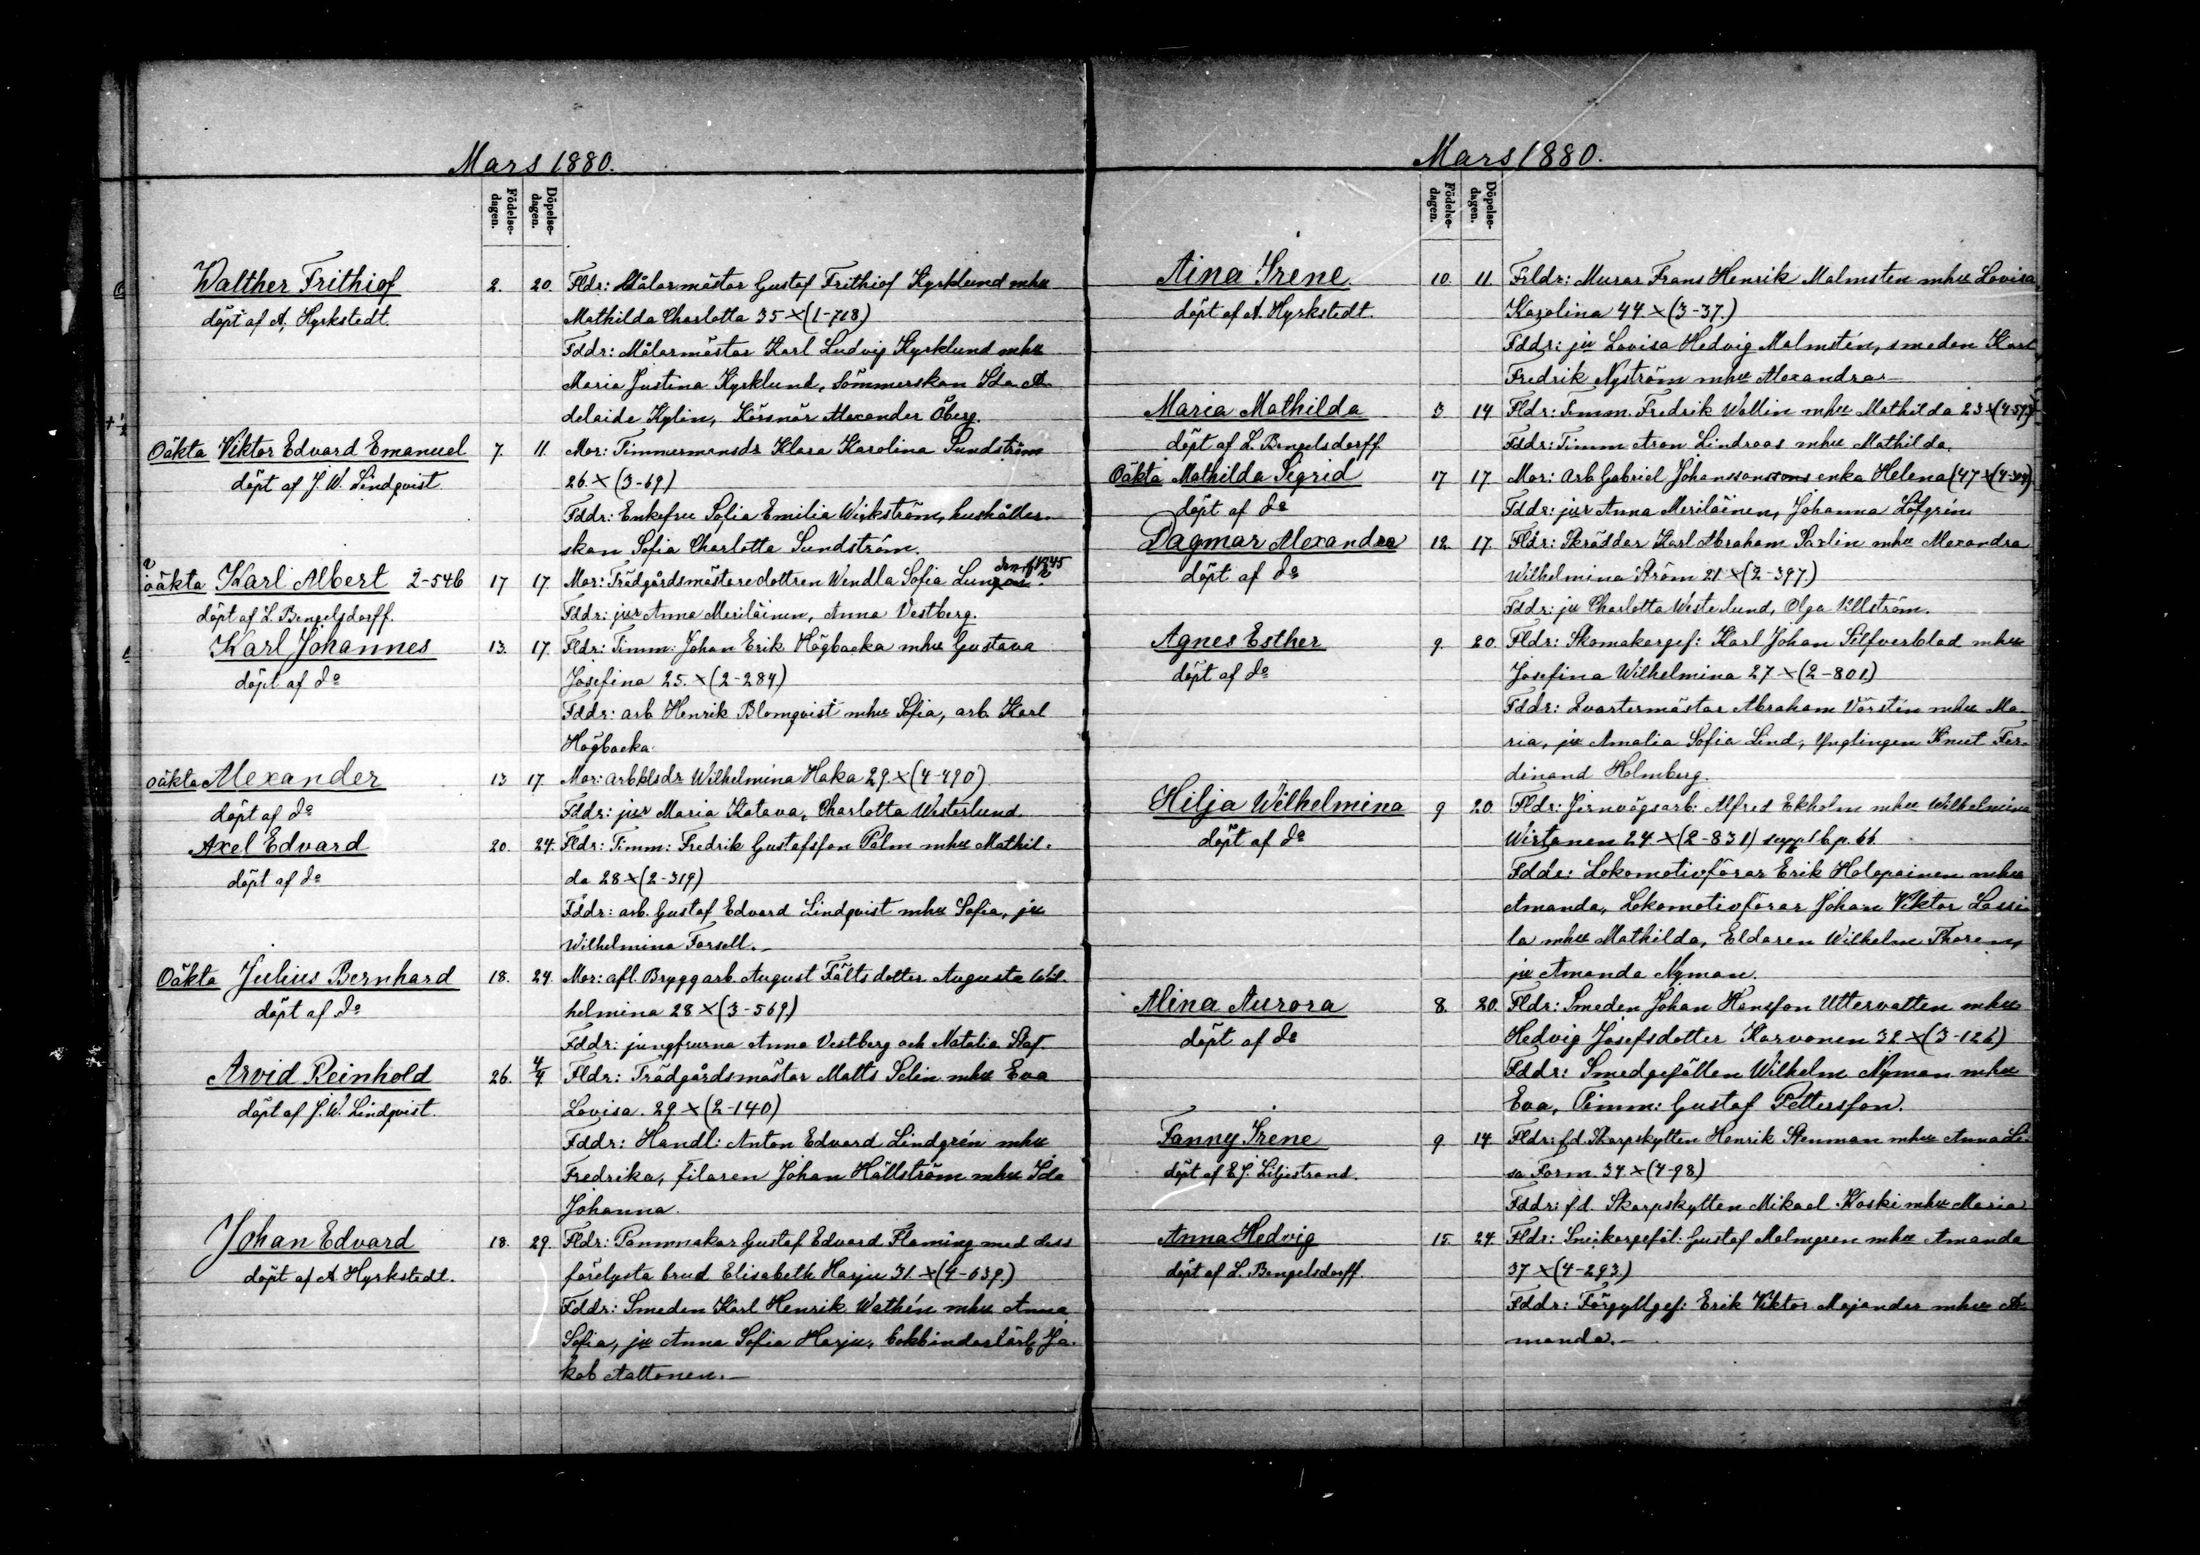 Mars 1880.
Födelse-dagen.
Döpelse-dagen.
Walther Frithiof 2. 20. Fldr: Målarmästar Gustaf Frithiof Kyrklund mhu
döpt af A. Hyrkstedt. Mathilda Charlotta 35 × (1-718)
Fddr: Målarmästar Karl Ludvig Kyrklund mhu
Maria Justina Kyrklund, Sömmerskan Ida A-
delaide Kylin, Körsnär Alexander Öberg.
Oäkta Viktor Edvard Emanuel 7. 11. Mor: Timmermansdr Klara Karolina Sundström
döpt af J. W. Lindqvist. 26. × (3-69)
Fddr: Enkefru Sofia Emilia Wickström, hushåller-
skan Sofia Charlotta Sundström.
oäkta Karl Albert 2-546 17 17. Mor: Trädgårdsmästaredottren Wendla Sofia
döpt af L. Bengelsdorff. Fddr: jur Anna Meriläinen, Anna Vestberg.
Karl Johannes 13. 17. Fldr: Timm: Johan Erik Högbacka mhu Gustava
döpt af do Josefina 25. × (2-284)
Fddr: arb. Henrik Blomqvist mhu Sofia, arb. Karl
Högbacka.
oäkta Alexander 13 17. Mor: arbklsdr Wilhelmina Haka 29. × (4-490)
döpt af do Fddr: jur Maria Katava, Charlotta Westerlund.
Axel Edvard 20. 24. Fldr: Timm: Fredrik Gustafsson Palm mhu Mathil-
döpt af do da 28 × (2-319)
Fddr: arb. Gustaf Edvard Lindqvist mhu Sofia, ju
Wilhelmina Forsell.-
Oäkta Julius Bernhard 18. 24. Mor: afl. Bryggarb. August Fälts dotter Augusta Wil-
döpt af do helmina 28 × (3-569.)
Fddr: jungfrurna Anna Vestberg och Natalia Staf.
Arvid Reinhold 26. 4/4. Fldr: Trädgårdsmästar Matts Selin mhu Eva
döpt af J. W. Lindqvist. Lovisa. 29 × (2-140)
Fddr: Handl: Anton Edvard Lindgrén mhu
Fredrika, filaren Johan Hällström mhu Ida
Johanna.
Johan Edvard 18. 29. Fldr: Pannmakar Gustaf Edvard Flaming med dess
döpt af A Hyrkstedt. förelysta brud Elisabeth Harju 31. × (4-639.)
Fddr: Smeden Karl Henrik Wathén mhu Anna
Sofia, ju Anna Sofia Harju, bokbindarlärl. Ja-
kob Aaltonen.-
Mars 1880.
Födelse-dagen.
Döpelse-dagen.
Aina Irene. 10. 11. Frldr: Murar Frans Henrik Malmsten mhu Lovisa
döpt af A. Hyrkstedt. Karolina 44 × (3-37.)
Fddr: ju Lovisa Hedvig Malmstén, smeden Karl
Fredrik Nyström mhu Alexandra.-
Maria Mathilda 3 14 Fldr: Timm. Fredrik Wallin mhu Mathilda 23
döpt af L. Bengelsdorff Fddr: Timm Aron Lindroos mhu Mathilda.
Oäkta Mathilda Sigrid 17 17. Mor: Arb Gabriel Johanssons enka Helena
döpt af do Fddr: jur Anna Meriläinen, Johanna Löfgrén
Dagmar Alexandra 12. 17. Fldr: Skräddar Karl Abraham Saxlin mhu Alexandra
döpt af do Wilhelmina Ström 21 × (2-397.)
Fddr: ju Charlotta Westerlund, Olga Villström.
Agnes Esther 9. 20. Fldr: Skomakergef: Karl Johan Silfverblad mhu
döpt af do Josefina Wilhelmina 27 × (2-801)
Fddr: Qvartermästar Abraham Vörstén mhu Ma-
ria, ju Amalia Sofia Lind, Ynglingen Knut Fer-
dinand Holmberg.
Hilja Wilhelmina 9 20. Fldr: Jernvägsarb: Alfred Ekholm mhu Wilhelmina
döpt af do Wirtanen 24 × (2-831) p. 66.
Fddr: Lokomotivförar Erik Holopainen mhu
Amanda, Lokomotivförar Johan Viktor Lassi-
la mhu Mathilda, Eldaren Wilhelm Thoren,
ju Amanda Nyman.
Alina Aurora 8. 20. Fldr: Smeden Johan Hansson Uttervatten mhu
döpt af do Hedvig Josefsdotter Karvonen 32 × (3-126)
Fddr: Smedgesällen Wilhelm Nyman mhu
Eva, Timm: Gustaf Pettersson.
Fanny Irene 9 14 Fldr: f.d. Skarpskytten Henrik Stenman mhu Anna Li-
döpt af E. J. Liljestrand. sa Form. 34 × (4-98)
Fddr: f.d. Skarpskytten Mikael Koski mhu Maria
Anna Hedvig 15. 24. Fldr: Snickargesäl: Gustaf Malmgren mhu Amanda
döpt af L. Bengelsdorff. 37 × (4-293.)
Fddr: Förgyllgef: Erik Viktor Majander mhu A-
manda.-